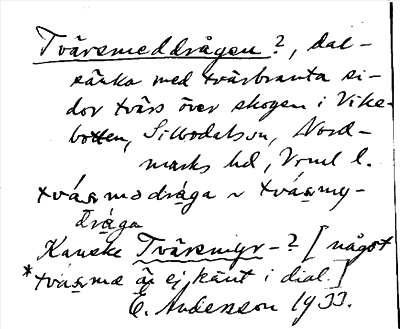 Tvärsmeddrågen?, dal-
sänka med tvärbranta si-
dor tvärs över skogen i Vike-
botten, Silbodalssn, Nord-
marks hd, Vrml l.
tvǻₐsmedrå̱ga ~ tvǻₐsmy-
drå̱ga
Kanske Tvärsmyr-? [något
*tvá̱sme är ej känt i dial.]
E. Andersson 1933.